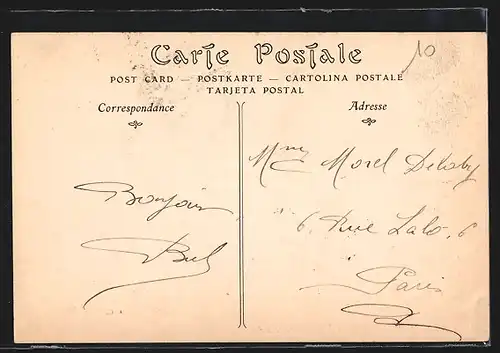 10
Carte Postale
POST CARD — POSTKARTE — CARTOLINA POSTALE
TARJETA POSTAL
Correspondance
Adresse
Bonjour
Mme Morel
6, Rue Lalo, 6
Paris